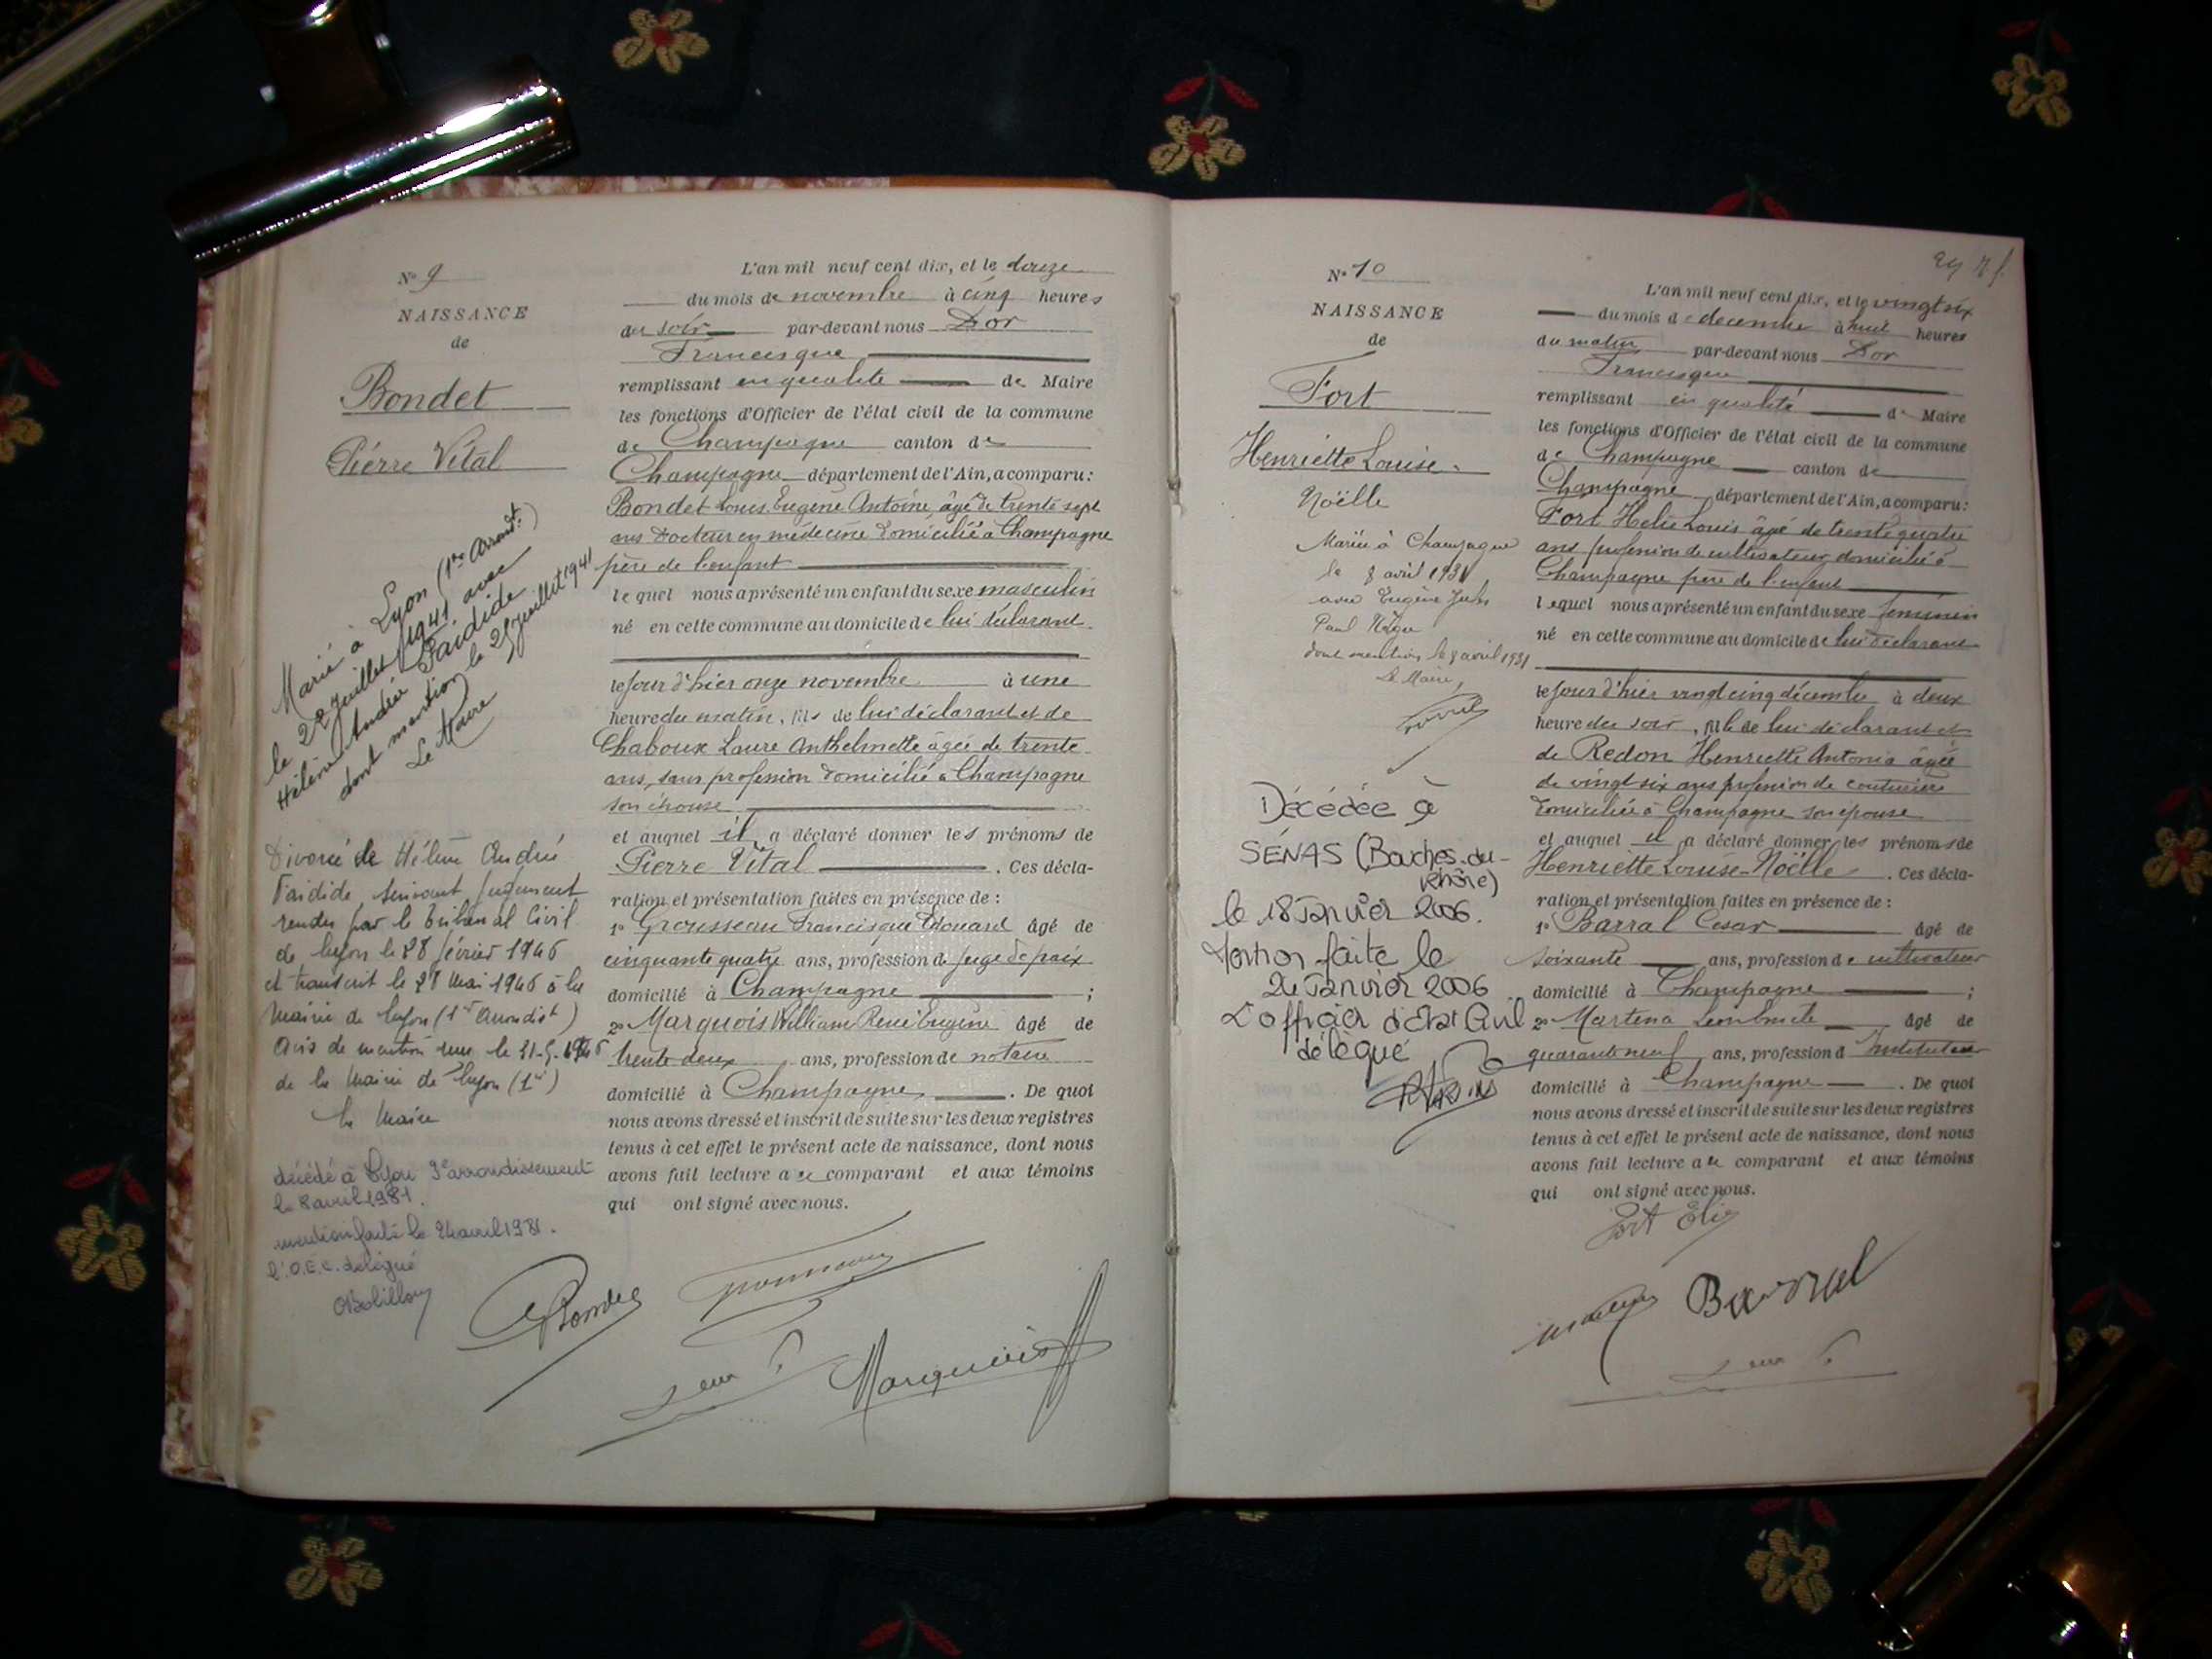 N° 9
NAISSANCE
de
Bondet
Pierre Vital
Marié à Lyon (1er Arrondt.)
le juillet 1941 avec
Hélène Andrée Faidide
dont mention le juillet 1941
Le Maire
Divorcé de Hélène André
Faidide, suivant jugement
rendu par le tribunal Civil
de Lyon le 28 février 1946
et transcrit le 28 Mai 1946 à la
Mairie de Lyon (1er Arrondist)
Avis de mention reçu le 31-5-1946
de la Mairie de Lyon (1er)
le Maire
décédé à Lyon arrondissement
le 8 avril 1981.
mention faite le 24 avril 1981.
l'O.E.C. délégué
L'an mil neuf cent dix, et le douze
du mois de novembre à cinq heures
du soir par-devant nous Dor
Francisque
remplissant en qualité de Maire
les fonctions d'Officier de l'état civil de la commune
de Champagne canton de
Champagne département de l'Ain, a comparu:
Bondet Louis Eugène Antoine, âgé de trente sept
ans Docteur en médecine domicilié à Champagne
père de l'enfant
lequel nous a présenté un enfant du sexe masculin
né en cette commune au domicile de lui déclarant
le jour d'hier onze novembre à une
heure du matin, fils de lui déclarant et de
Chaboux Laure Anthelmette âgée de trente
ans, sans profession domicilié à Champagne
son épouse
et auquel il a déclaré donner les prénoms de
Pierre Vital. Ces décla-
ration et présentation faites en présence de :
1° Grousseau Francisque Edouard âgé de
cinquante quatre ans, profession de juge de paix
domicilié à Champagne ;
2° Marquois William René Eugène âgé de
trente deux ans, profession de notaire
domicilié à Champagne. De quoi
nous avons dressé et inscrit de suite sur les deux registres
tenus à cet effet le présent acte de naissance, dont nous
avons fait lecture au comparant et aux témoins
qui ont signé avec nous.
Bondet
Marquois
N° 10
NAISSANCE
de
Fort
Henriette Louise
Noëlle
Mariée à Champagne
le 8 avril 1931
avec Eugène Jules
Paul
dont mention le 8 avril 1931
Le Maire,
Décédée à
SÉNAS (Bouches-du-
Rhône)
le 18 Janvier 2006.
Mention faite le
Janvier 2006
L'officier d'Etat Civil
délégué
L'an mil neuf cent dix, et le vingt six
du mois de décembre à huit heures
du matin par-devant nous Dor
Francisque
remplissant en qualité de Maire
les fonctions d'Officier de l'état civil de la commune
de Champagne canton de
Champagne département de l'Ain, a comparu:
Fort Helie Louis âgé de trente quatre
ans profession de cultivateur domicilié à
Champagne père de l'enfant
lequel nous a présenté un enfant du sexe féminin
né en cette commune au domicile de lui déclarant
le jour d'hier vingt cinq décembre à deux
heure du soir, fille de lui déclarant et
de Redon Henriette Antonia âgée
de vingt six ans profession de couturière
domiciliée à Champagne son épouse
et auquel il a déclaré donner les prénoms de
Henriette Louise-Noëlle. Ces décla-
ration et présentation faites en présence de :
1° Barral Cesar âgé de
soixante ans, profession de cultivateur
domicilié à Champagne ;
2° Martena âgé de
quarante neuf ans, profession d'Instituteur
domicilié à Champagne. De quoi
nous avons dressé et inscrit de suite sur les deux registres
tenus à cet effet le présent acte de naissance, dont nous
avons fait lecture au comparant et aux témoins
qui ont signé avec nous.
Fort Elie
Barral